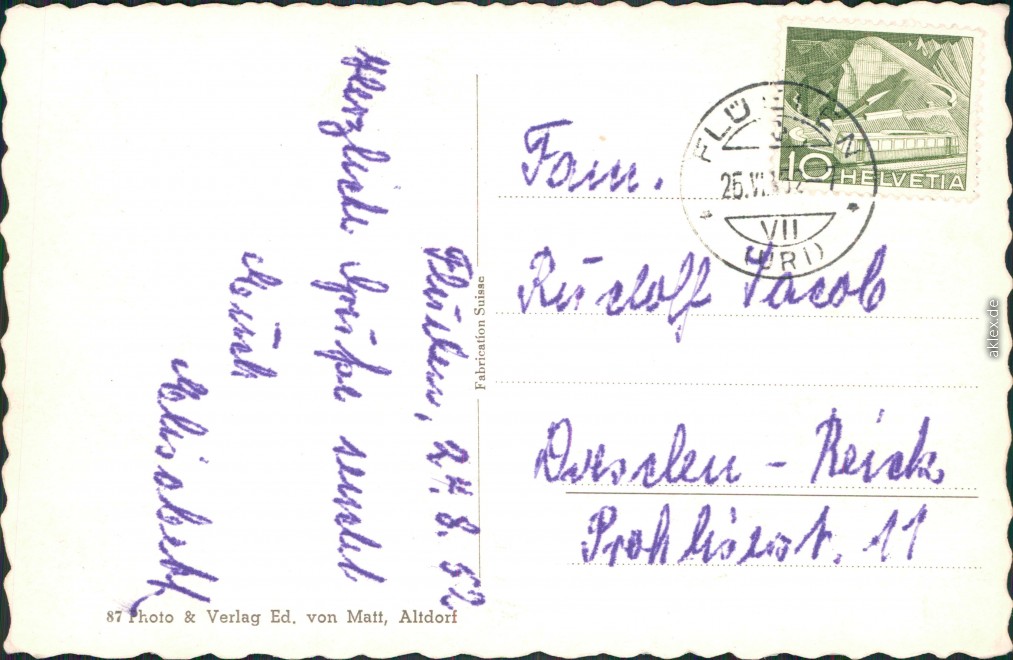 Flüelen, 24. 8. 52
Herzliche Grüße sendet
Euch
Elisabeth
Fabrication Suisse
87 Photo & Verlag Ed. von Matt, Altdorf
10 HELVETIA
FLÜELEN
VII
(URI)
Fam.
Rudolf Jacob
Dresden - Reick
Prohliserst. 11
aklex.de